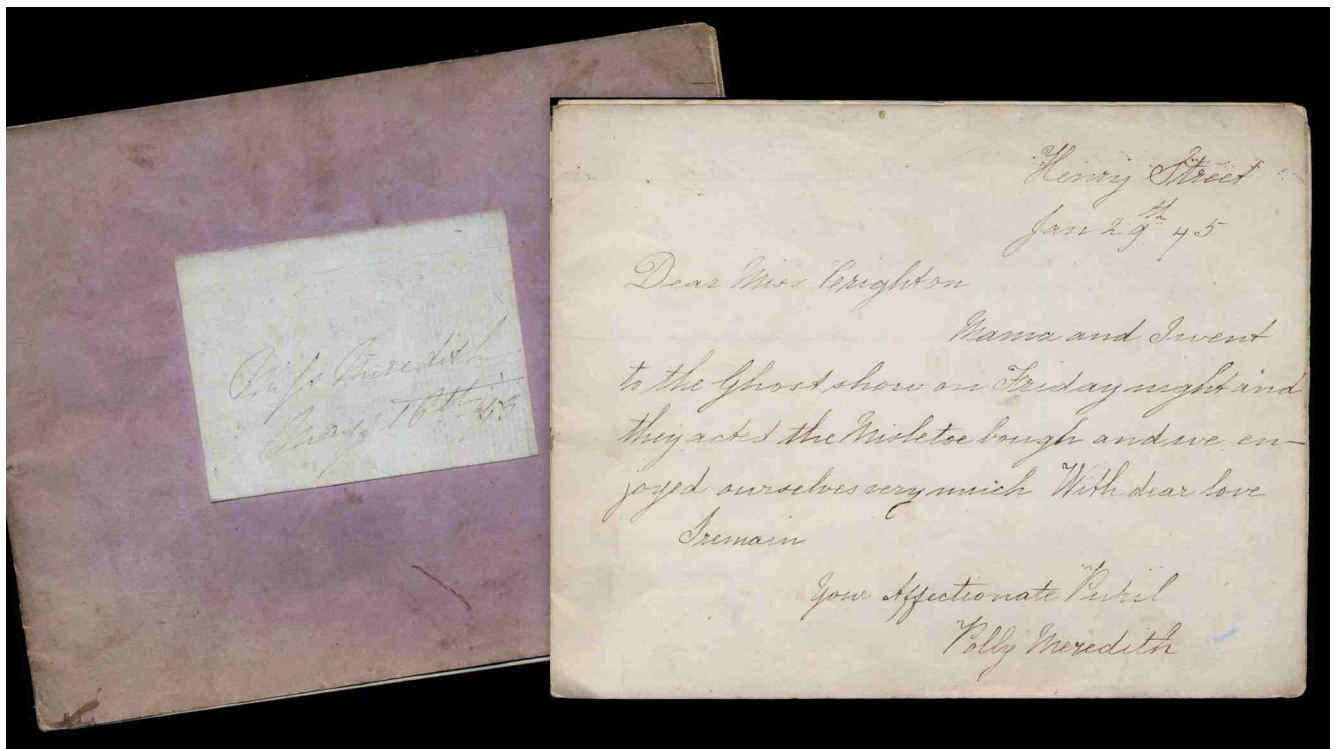 Miss Meredith
May 16th
Henry Street
Jan 29th 45
Dear Miss Crighton
Mama and I went
to the Ghost show on Friday night and
they acted the Misletoe bough and we en-
joyed ourselves very much With dear love
I remain
Your Affectionate Pupil
Polly Meredith